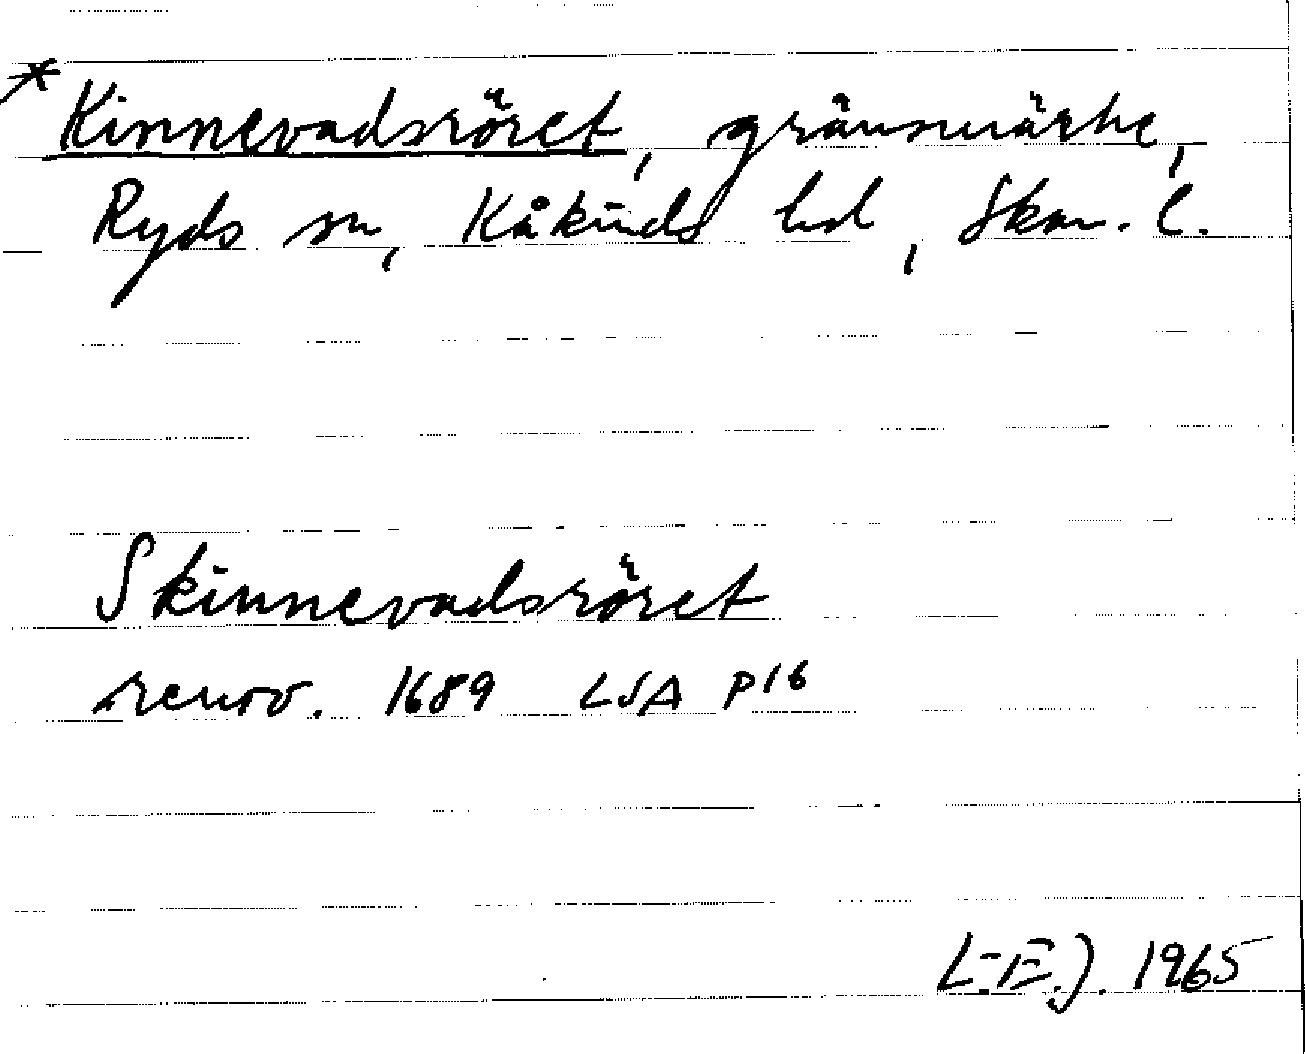 * Kinnevadsröret, gränsmärke,
Ryds sn, Kåkinds hd, Skar. l.
Skinnevadsröret
renov. 1689 LSA P16
L-E.J. 1965